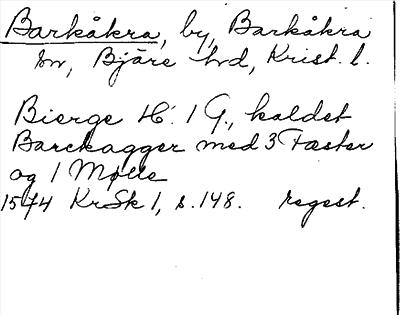 Barkåkra, by, Barkåkra
sn, Bjäre hd, Krist. l.
Bierge H: 1 G., kaldet
Barckagger med 3 Fæster
og 1 Mølle
1574 KrSk 1, s. 148. regest.